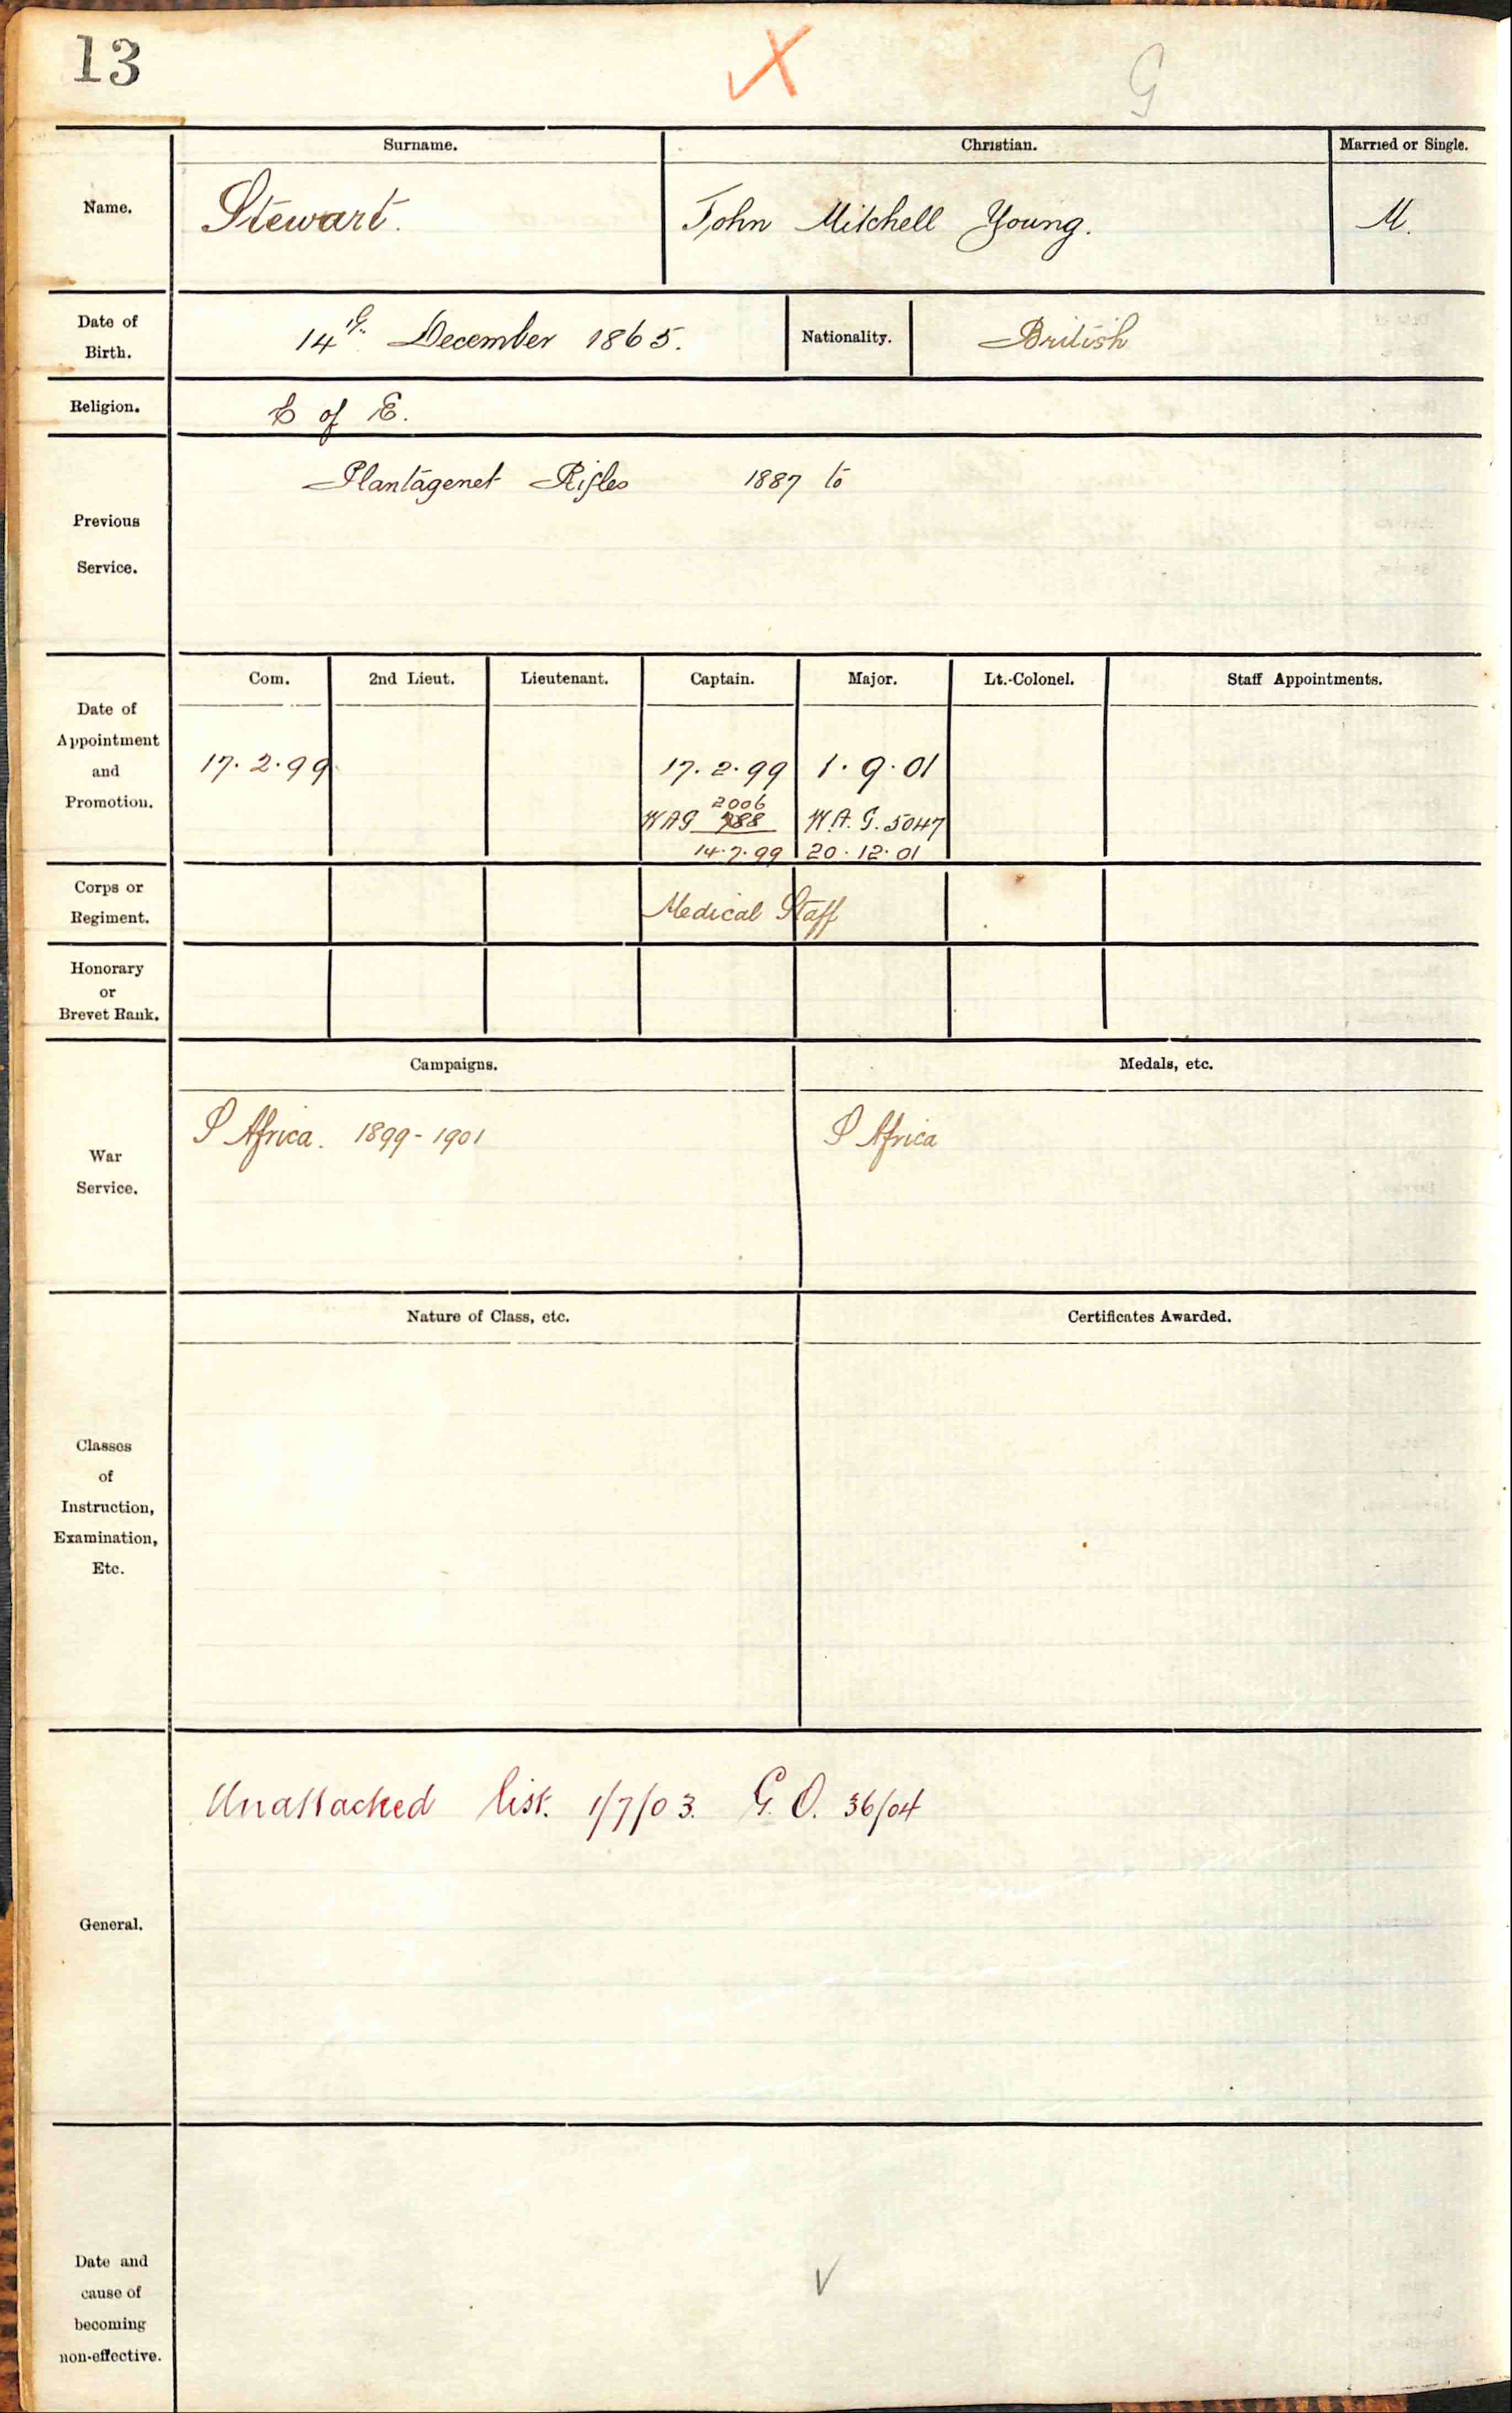 13
G
Surname. Christian. Married or Single.
Name. Stewart. John Mitchell Young. M.
Date of Birth. 14th December 1865. Nationality. British
Religion. C of E.
Previous Service. Plantagenet Rifles 1887 to
Date of Appointment and Promotion.
Com. 2nd Lieut. Lieutenant. Captain. Major. Lt.-Colonel. Staff Appointments.
17.2.99 17.2.99 1.9.01
2006
WAG 988 W.A.G. 5047
14.7.99 20.12.01
Corps or Regiment. Medical Staff
Honorary or Brevet Rank.
War Service.
Campaigns. Medals, etc.
S Africa. 1899-1901 S Africa
Classes of Instruction, Examination, Etc.
Nature of Class, etc. Certificates Awarded.
General.
Unattached list. 1/7/03. G.O. 36/04
Date and cause of becoming non-effective.